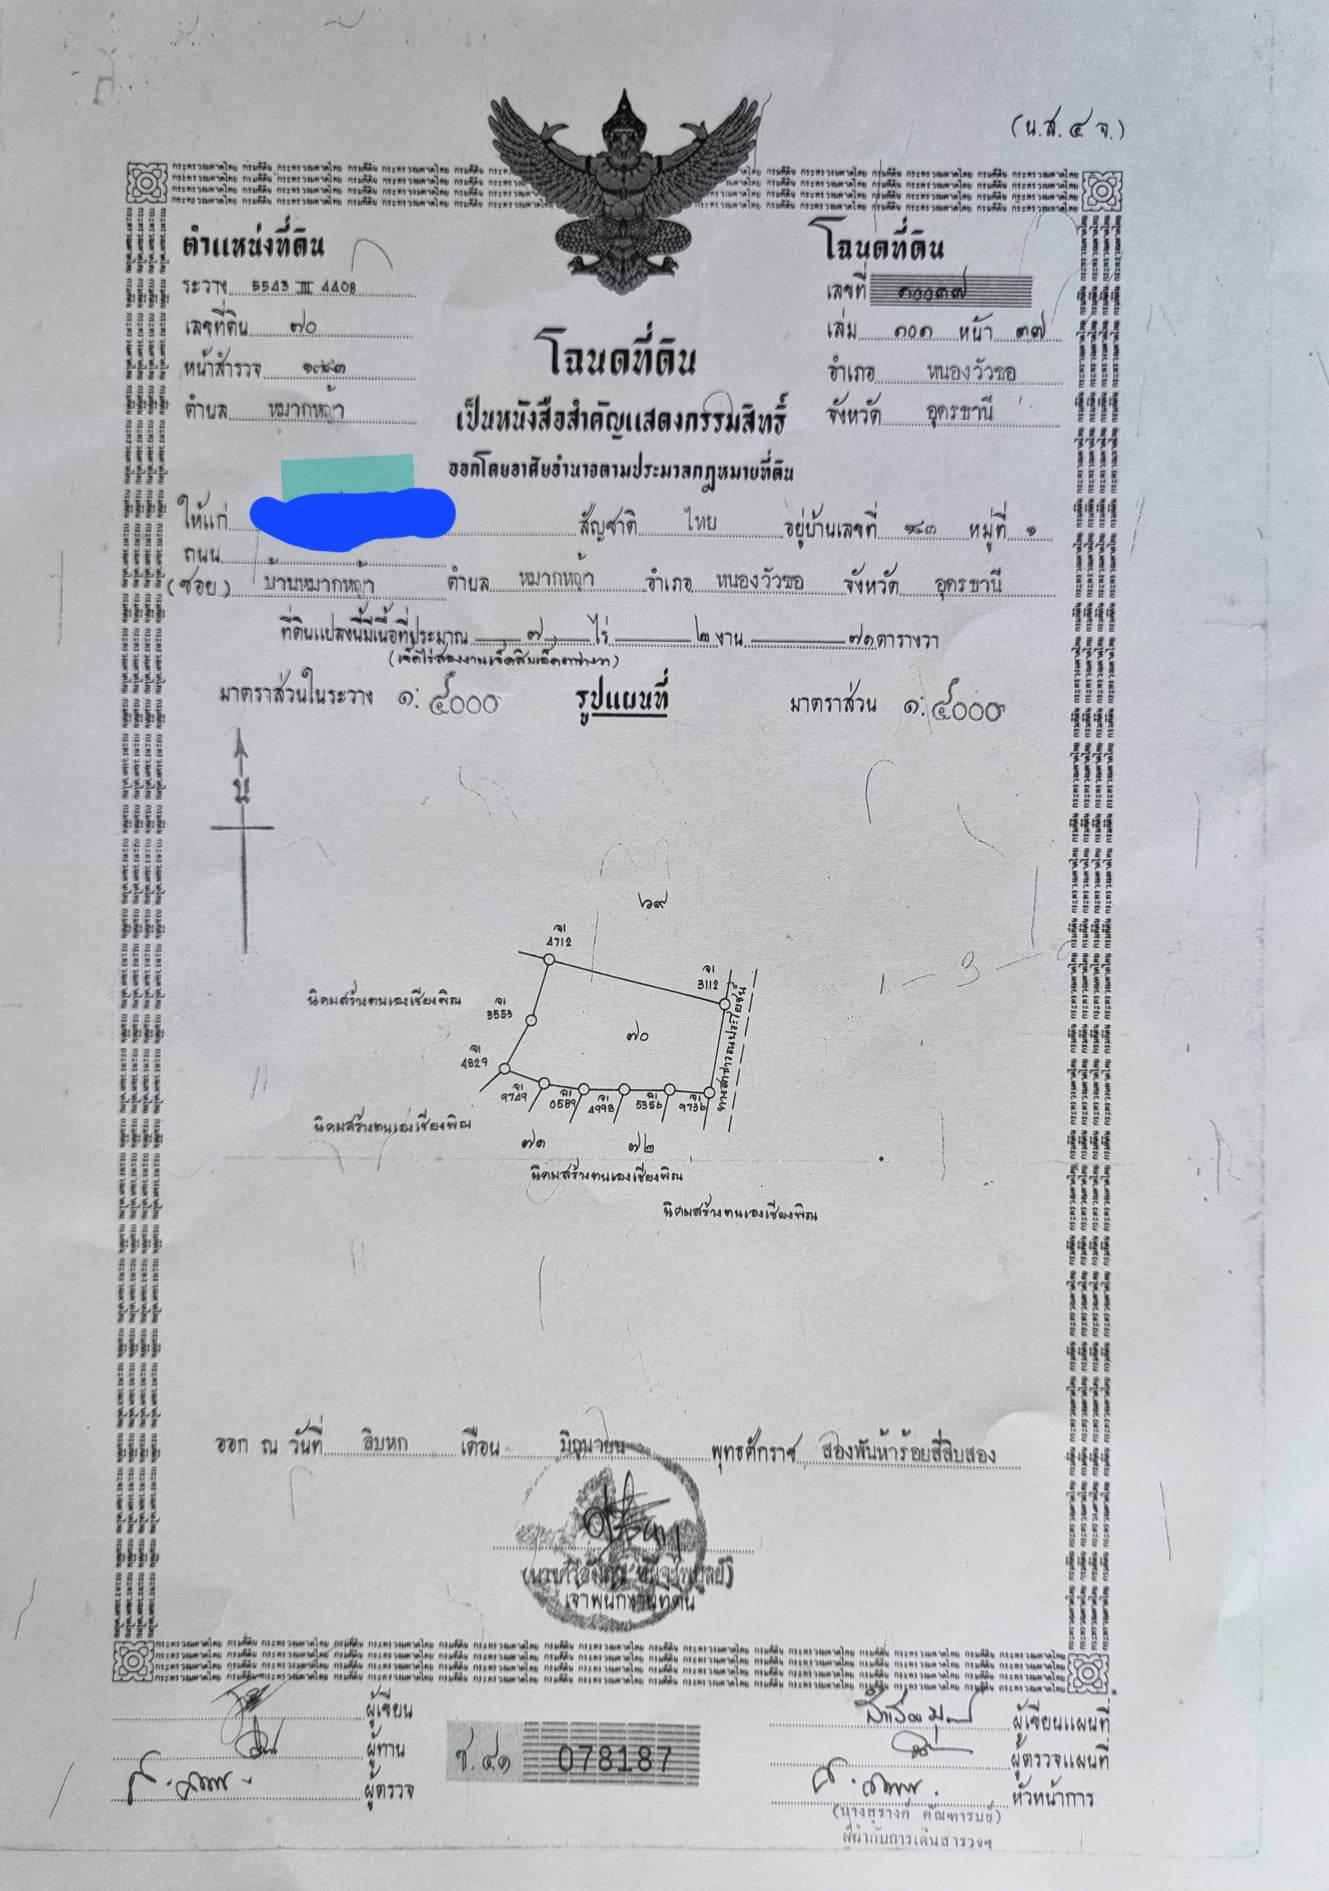 (น.ส.๔ จ.)
ตำแหน่งที่ดิน
ระวาง 5543 III 4408
เลขที่ดิน ๗๐
หน้าสำรวจ
ตำบล หมากหญ้า
โฉนดที่ดิน
เลขที่ ๑๐๐๓๗
เล่ม ๑๐๑ หน้า ๓๗
อำเภอ หนองวัวซอ
จังหวัด อุดรธานี
โฉนดที่ดิน
เป็นหนังสือสำคัญแสดงกรรมสิทธิ์
ออกโดยอาศัยอำนาจตามประมวลกฎหมายที่ดิน
ให้แก่ สัญชาติ ไทย อยู่บ้านเลขที่ ๑๘๓ หมู่ที่ ๑
ถนน
(ซอย) บ้านหมากหญ้า ตำบล หมากหญ้า อำเภอ หนองวัวซอ จังหวัด อุดรธานี
ที่ดินแปลงนี้มีเนื้อที่ประมาณ ๗ ไร่ ๒ งาน ๗๑ ตารางวา
(เจ็ดไร่สองงานเจ็ดสิบเอ็ดตารางวา)
มาตราส่วนในระวาง ๑:๔๐๐๐ รูปแผนที่ มาตราส่วน ๑:๔๐๐๐
น
๖๙
จ 4712
จ 3112
นิคมสร้างตนเองเชียงพิณ
จ 3553
ทางสาธารณประโยชน์
๗๐
จ 4829
จ 9749
จ 0589
จ 4998
จ 5356
จ 9736
นิคมสร้างตนเองเชียงพิณ
๗๑
๗๒
นิคมสร้างตนเองเชียงพิณ
นิคมสร้างตนเองเชียงพิณ
1 - 3 -
ออก ณ วันที่ สิบหก เดือน มิถุนายน พุทธศักราช สองพันห้าร้อยสี่สิบสอง
เจ้าพนักงานที่ดิน
ผู้เขียน
ผู้ทาน
ผู้ตรวจ
ช.๔๑ 078187
ผู้เขียนแผนที่
ผู้ตรวจแผนที่
หัวหน้าการ
(นางสุรางค์ คัณฑารมย์)
ผู้กำกับการเดินสำรวจฯ